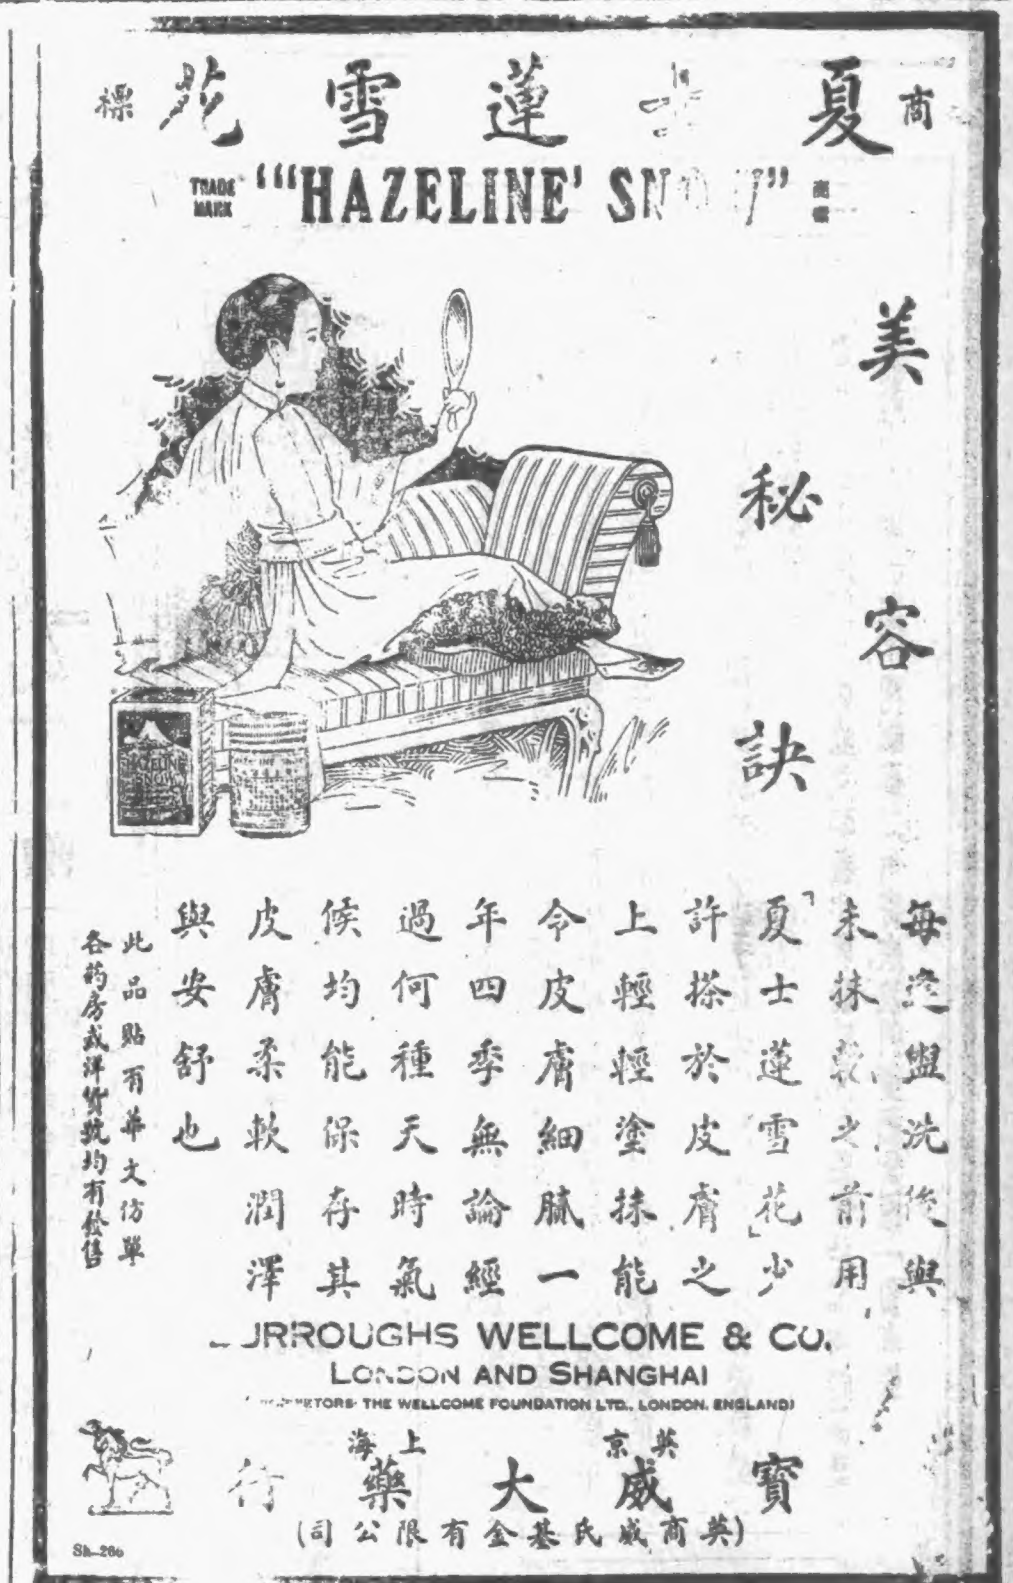 商夏士蓮雪花標
TRADE MARK "'HAZELINE' SNOW" 商標
美容
秘訣
HAZELINE SNOW
每逢盥洗後與
未抹乾之前用
「夏士蓮雪花」少
許搽於皮膚之
上輕輕塗抹能
令皮膚細膩一
年四季無論經
過何種天時氣
候均能保存其
皮膚柔軟潤澤
與安舒也
此品貼有華文仿單
各药房或洋貨號均有發售
BURROUGHS WELLCOME & CO.
LONDON AND SHANGHAI
THE WELLCOME FOUNDATION LTD., LONDON, ENGLAND)
英京 上海
寶威大藥行
(英商威氏基金有限公司)